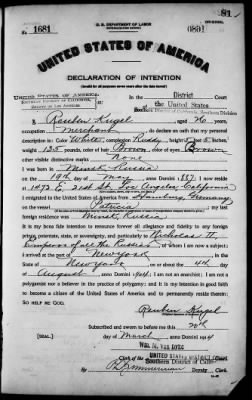 81
U. S. DEPARTMENT OF LABOR
NATURALIZATION SERVICE
No. 1681
UNITED STATES OF AMERICA
DECLARATION OF INTENTION
UNITED STATES OF AMERICA
In the District Court
of the United States
I, Reuben Kugel, aged 26 years,
occupation Merchant, do declare on oath that my personal
description is: Color White, complexion Ruddy, height 5 feet inches,
weight 135 pounds, color of hair Brown, color of eyes Brown
other visible distinctive marks None
I was born in Minsk, Russia
on the day of May, anno Domini 1887; I now reside
at 1473 E 21st St., Los Angeles, California
I emigrated to the United States of America from Hamburg, Germany
on the vessel Patricia; my last
foreign residence was Minsk, Russia
It is my bona fide intention to renounce forever all allegiance and fidelity to any foreign
prince, potentate, state, or sovereignty, and particularly to Nicholas II,
Emperor of all the Russias, of whom I am now a subject; I
arrived at the port of New York, in the
State of New York, on or about the 4th day
of August, anno Domini 1904; I am not an anarchist; I am not a
polygamist nor a believer in the practice of polygamy; and it is my intention in good faith
to become a citizen of the United States of America and to permanently reside therein:
SO HELP ME GOD.
Reuben Kugel
Subscribed and sworn to before me this
[SEAL.] day of March, anno Domini 1914
Wm. M. Van Dyke
Clerk of the UNITED STATES DISTRICT COURT
By Zimmerman, Deputy Clerk.